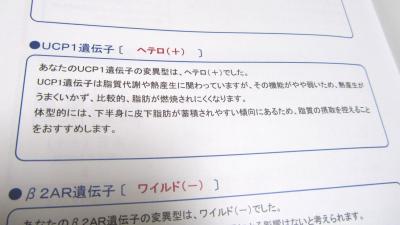 ●UCP1遺伝子〔 ヘテロ(＋) 〕
あなたのUCP1遺伝子の変異型は、ヘテロ(＋)でした。
UCP1遺伝子は脂質代謝や熱産生に関わっていますが、その機能がやや弱いため、熱産生が
うまくいかず、比較的、脂肪が燃焼されにくくなります。
体型的には、下半身に皮下脂肪が蓄積されやすい傾向にあるため、脂質の摂取を控えること
をおすすめします。
●β2AR遺伝子〔 ワイルド(－) 〕
あなたのβ2AR遺伝子の変異型は、ワイルド(－)でした。
影響はないと考えられます。